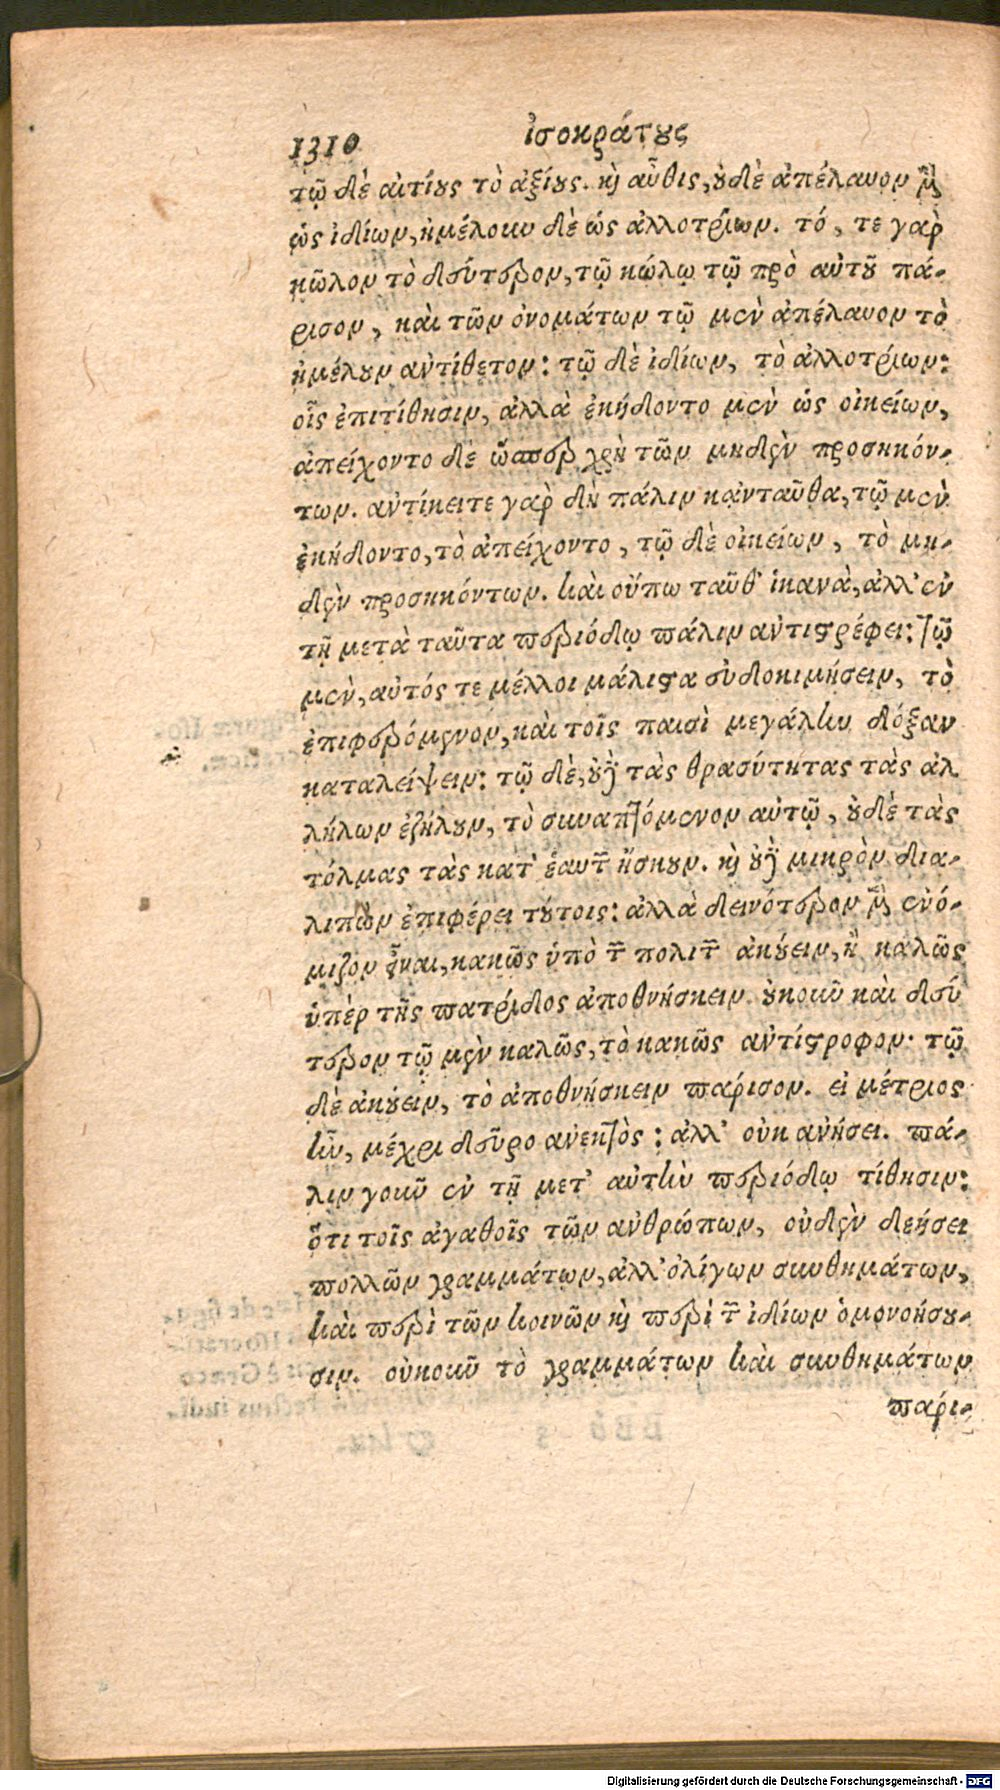 1310 ἰσοκράτους
τῷ δὲ αἰτίους τὸ ἀξίους. καὶ αὖθις, οὐδὲ ἀπέλαυον μὲν
ὡς ἰδίων, ἠμέλουν δὲ ὡς ἀλλοτρίων. τό, τε γὰρ
κῶλον τὸ δεύτερον, τῷ κώλῳ τῷ πρὸ αὐτοῦ πά-
ρισον, καὶ τῶν ὀνομάτων τῷ μὲν ἀπέλαυον τὸ
ἠμέλουν ἀντίθετον: τῷ δὲ ἰδίων, τὸ ἀλλοτρίων:
οἷς ἐπιτίθησιν, ἀλλὰ ἐκήδοντο μὲν ὡς οἰκείων,
ἀπείχοντο δὲ ὥσπερ χρὴ τῶν μηδὲν προσηκόν-
των. ἀντίκειτε γὰρ δὴ πάλιν κἀνταῦθα, τῷ μὲν
ἐκήδοντο, τὸ ἀπείχοντο, τῷ δὲ οἰκείων, τὸ μη-
δὲν προσηκόντων. καὶ οὔπω ταῦθ' ἱκανὰ, ἀλλ' ἐν
τῇ μετὰ ταῦτα περιόδῳ πάλιν ἀντιστρέφει: τῷ
μὲν, αὐτός τε μέλλοι μάλιστα εὐδοκιμήσειν, τὸ
ἐπιφερόμενον, καὶ τοῖς παισὶ μεγάλην δόξαν
καταλείψειν: τῷ δὲ, οὐδὲ τὰς θρασύτητας τὰς ἀλ
λήλων ἐζήλουν, τὸ συναπτόμενον αὐτῷ, οὐδὲ τὰς
τόλμας τὰς κατ' ἑαυτῶν ἤσκουν. καὶ οὐδὲ μικρὸν δια-
λιπὼν ἐπιφέρει τούτοις: ἀλλὰ δεινότερον μὲν ἐνό-
μιζον εἶναι, κακῶς ὑπὸ τῶν πολιτῶν ἀκούειν, ἢ καλῶς
ὑπὲρ τῆς πατρίδος ἀποθνήσκειν. οὐκοῦν καὶ δεύ
τερον τῷ μὲν καλῶς, τὸ κακῶς ἀντίστροφον. τῷ
δὲ ἀκούειν, τὸ ἀποθνήσκειν πάρισον. εἰ μέτριος
ἦν, μέχρι δεῦρο ἀνεκτὸς: ἀλλ' οὐκ ἀνήσει. πά-
λιν γοῦν ἐν τῇ μετ' αὐτὴν περιόδῳ τίθησιν:
ὅτι τοῖς ἀγαθοῖς τῶν ἀνθρώπων, οὐδὲν δεήσει
πολλῶν γραμμάτων, ἀλλ' ὀλίγων συνθημάτων,
καὶ περὶ τῶν κοινῶν καὶ περὶ τῶν ἰδίων ὁμονοήσου-
σιν. οὐκοῦν τὸ γραμμάτων καὶ συνθημάτων
παρι-
Digitalisierung gefördert durch die Deutsche Forschungsgemeinschaft - DFG